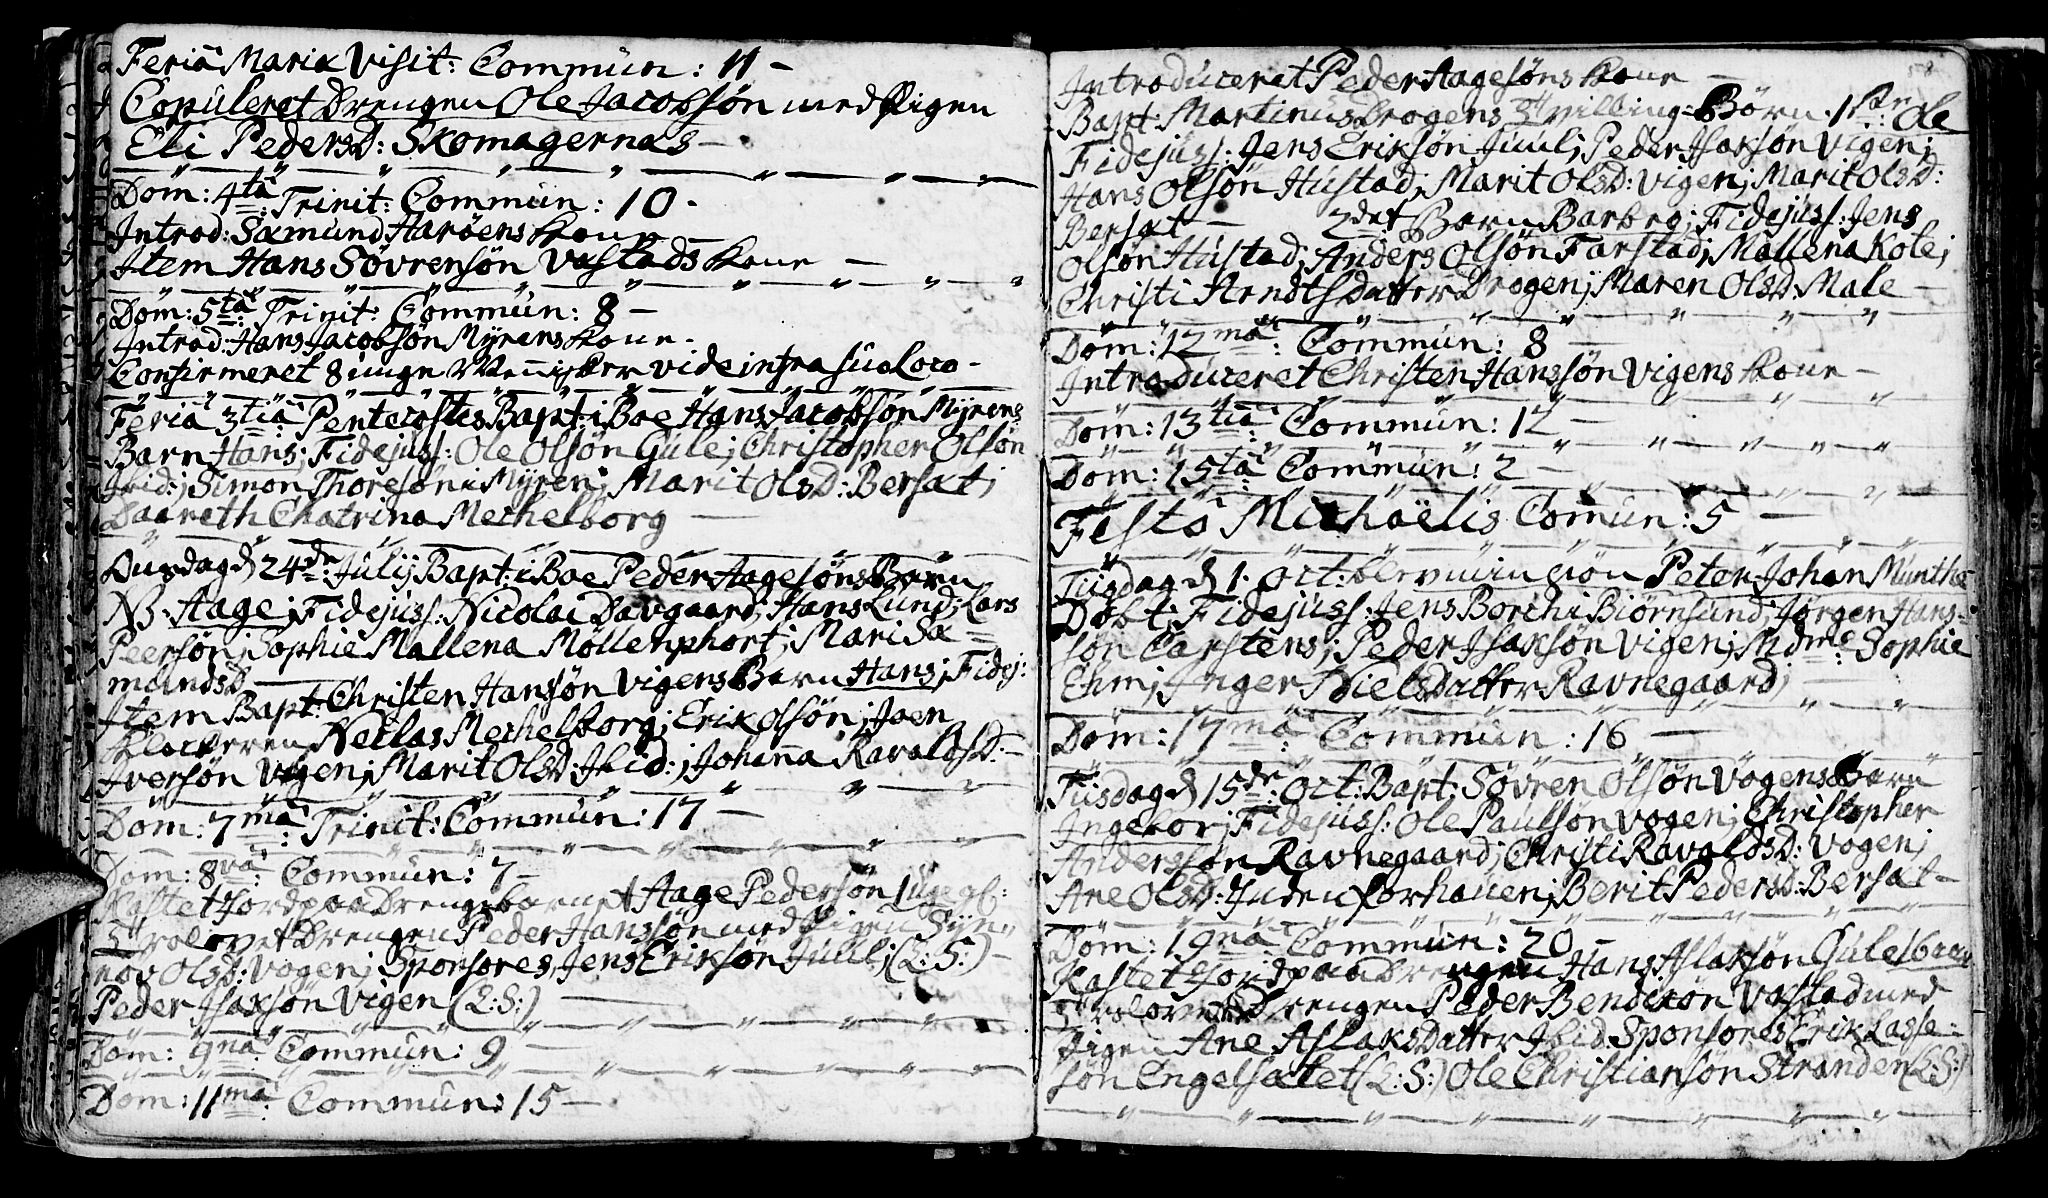 Feriâ Mariæ Visit: Commun: 11 -
Copuleret Drengen Ole Jacobsön med Pigen
Eli Pedersd: Skomagernæs -
Dom: 4ta Trinit: Commun: 10 -
Introd: Sæmund Haröens Kone -
Item Hans Sövrensön Vastads Kone -
Dom: 5ta Trinit: Commun: 8 -
Introd: Hans Jacobsön Myrens Kone -
Confirmeret 8 unge Mennisker vide infra suo Loco -
Feriâ 3tiâ Pentecostes Bapt: i Boe Hans Jacobsön Myrens
Barn Hans; Fidejuss: Ole Olsön Gule; Christopher Olsön
Ibid:; Simon Thoresön i Myren; Marit Olsd: Bersæt;
Daareth Chatrina Mechelborg -
Onsdag d 24de Julij Bapt: i Boe Peder Aagesöns Barn
NB. Aage; Fidejuss: Nicolai Davgaard; Hans Lund; Lars
Peersön; Sophie Mallena Möllenphort; Mari Sæ=
mundsd -
Item Bapt: Christen Hansön Vigens Barn Hans; Fidej:
Klockeren Neclas Mechelborg; Erik Olsön; Joen
Iversön Vogen; Marit Olsd: Ibid:; Johanna Ravaldsd: -
Dom: 7ma Trinit: Commun: 17 -
Dom: 8va: Commun: 7 -
Kastet Jord paa Drengebarnet Aage Pedersön 1 Uge gl:
Trolovet Drengen Peder Hanssön med Pigen Syn=
növ Olsd: Vogen; Sponsores, Jens Eriksön Juul; (L:S:) -
Peder Isaksön Vigen (L:S:) -
Dom: 9na: Commun: 9 -
Dom: 11ma: Commun: 15 -
58
Introduceret Peder Aagesöns Kone -
Bapt: Martinus Drogens Tvilling-Börn. 1ste: Ole
Fidejuss: Jens Eriksön Juul; Peder Isaksön Vigen;
Hans Olsön Hustad; Marit Olsd: Vigen; Marit Olsd:
Bersæt - 2det Barn Barbro; Fidejuss: Jens
Olsön Hustad; Anders Olsön Farstad; Mallena Kole;
Christi Arndtsdatter Drogen; Maren Olsd: Male -
Dom: 12ma: Commun: 8 -
Introduceret Christen Hanssön Vigens Kone -
Dom: 13tia: Commun: 12 -
Dom: 15ta Commun: 2 -
Festo Michaëlis Comun: 5 -
Tiisdag d 1. Oct: blev min Sön Peter Johan Munthe
Döbt; Fidejuss: Jens Borch i Biörnsund; Jörgen Hans=
sön Carstens; Peder Isaksön Vigen; Madme Sophie
Ehm; Inger Nielsdatter Ravnegaard; -
Dom: 17ma Commun: 16 -
Tiisdag d 15de: Oct: Bapt: Sövren Olsön Vogens Barn
Ingebor; Fidejuss: Ole Paulsön Vogen; Christopher
Anderssön Ravnegaard; Christi Ravaldsd: Vogen;
Ane Olsd: Inden forhauen; Berit Pedersd: Bersæt -
Dom: 19na Commun: 20 -
Kastet Jord paa Drengen Hans Aslaksön Gulesbaar
Trolovet Drengen Peder Bendixön Vastad med
Pigen Ane Aslaksdatter Ibid. Sponsores Erik Lasse=
sön Engelsætet (L:S:) Ole Christiansön Stranden (L:S:)